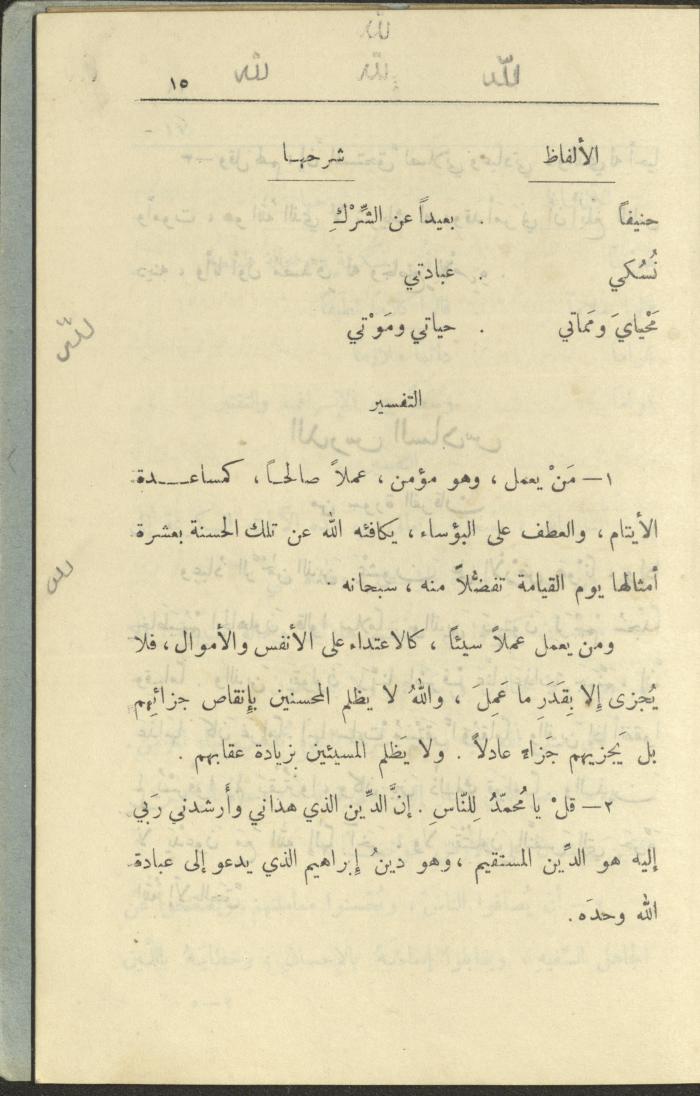 ١٥
الألفاظ شرحها
حنيفاً . بعيداً عن الشِّرْكِ
نُسُكي . عبادتي
مَحْيايَ ومَماتي . حياتي ومَوْتي
التفسير
١ – مَنْ يعمل ، وهو مؤمن ، عملاً صالحاً ، كمساعدة
الأيتام ، والعطف على البؤساء ، يكافئه الله عن تلك الحسنة بعشرة
أمثالها يوم القيامة تفضُّلاً منه ، سبحانه .
ومن يعمل عملاً سيئاً ، كالاعتداء على الأنفس والأموال ، فلا
يُجزى إلا بِقَدَرِ ما عَمِلَ ، واللهُ لا يظلم المحسنين بإنقاص جزائِهِم
بل يَجزيهم جَزاءً عادلاً . ولا يَظلم المسيئين بزيادة عقابهم .
٢ – قلْ يا مُحمّدُ لِلنّاسِ . إنَّ الدِّين الذي هداني وأَرشدني رَبي
إليه هو الدِّين المستقيم ، وهو دينُ إبراهيم الذي يدعو إلى عبادة
الله وحدَه .